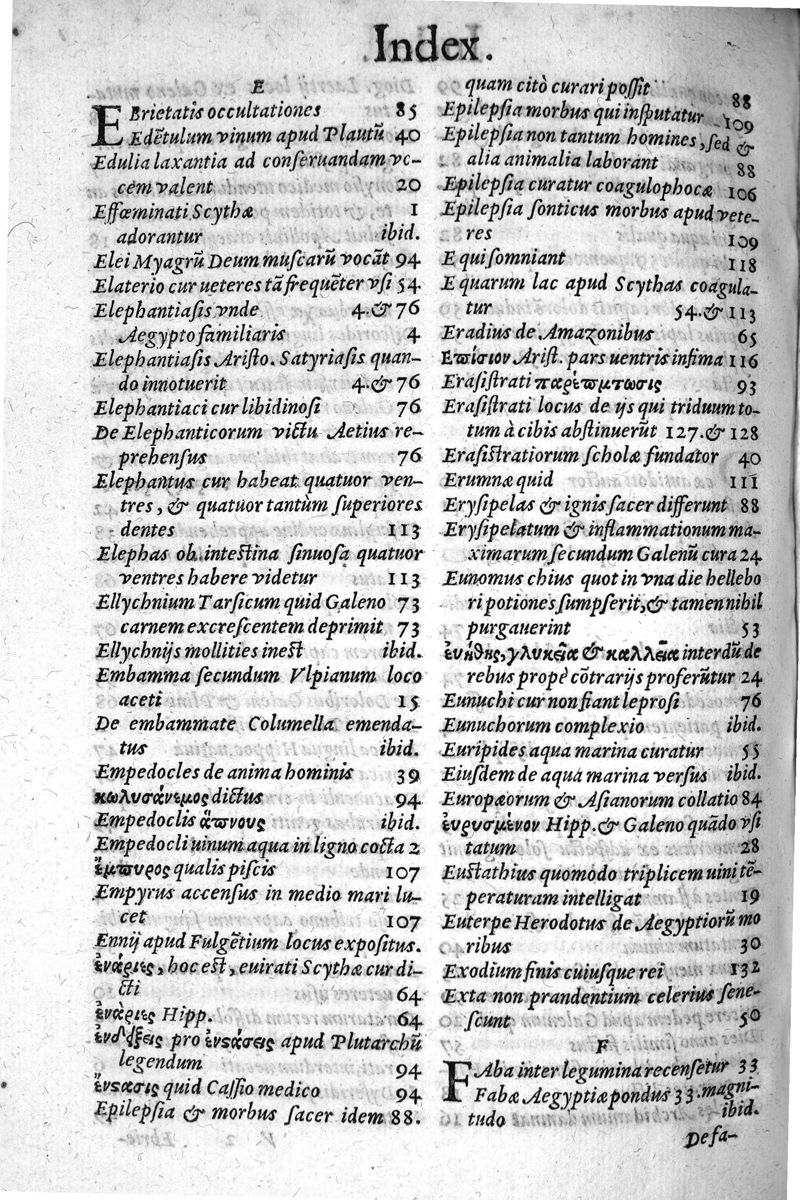 Index.
E
EBrietatis occultationes 85
Edētulum vinum apud Plautū 40
Edulia laxantia ad conseruandam vo-
cem valent 20
Effœminati Scythæ 1
adorantur ibid.
Elei Myagrū Deum muscarū vocāt 94
Elaterio cur ueteres tā frequēter vsi 54
Elephantiasis vnde 4.& 76
Aegypto familiaris 4
Elephantiasis Aristo. Satyriasis quan-
do innotuerit 4.& 76
Elephantiaci cur libidinosi 76
De Elephanticorum victu Aetius re-
prehensus 76
Elephantus cur habeat quatuor ven-
tres, & quatuor tantùm superiores
dentes 113
Elephas ob intestina sinuosa quatuor
ventres habere videtur 113
Ellychnium Tarsicum quid Galeno 73
carnem excrescentem deprimit 73
Ellychnijs mollities inest ibid.
Embamma secundum Vlpianum loco
aceti 15
De embammate Columella emenda-
tus ibid.
Empedocles de anima hominis 39
κωλυσάνεμος dictus 94
Empedoclis ἄπνους ibid.
Empedocli uinum aqua in ligno cocta 2
ἔμπυρος qualis piscis 107
Empyrus accensus in medio mari lu-
cet 107
Ennij apud Fulgētium locus expositus.
ἐνάριες, hoc est, euirati Scythæ cur di-
cti 64
ἐνàριες Hipp. 64
pro ἐνστάσεις apud Plutarchū
legendum 94
ἔνστασις quid Cassio medico 94
Epilepsia & morbus sacer idem 88.
quam citò curari possit 88
Epilepsia morbus qui insputatur 109
Epilepsia non tantum homines, sed &
alia animalia laborant 88
Epilepsia curatur coagulo phocæ 106
Epilepsia sonticus morbus apud vete-
res 109
Equi somniant 118
Equarum lac apud Scythas coagula-
tur 54.& 113
Eradius de Amazonibus 65
Επίσιον Arist. pars uentris infima 116
Erasistrati παρέμπτωσις 93
Erasistrati locus de ijs qui triduum to-
tum à cibis abstinuerūt 127.& 128
Erasistratiorum scholæ fundator 40
Erumnæ quid 111
Erysipelas & ignis sacer differunt 88
Erysipelatum & inflammationum ma-
ximarum secundum Galenū cura 24
Eunomus chius quot in vna die hellebo
ri potiones sumpserit, & tamen nihil
purgauerint 53
ἐυήθης, γλυκεῖα & καλλεῖα interdū de
rebus propè cōtrarijs proferūtur 24
Eunuchi cur non fiant leprosi 76
Eunuchorum complexio ibid.
Euripides aqua marina curatur 55
Eiusdem de aqua marina versus ibid.
Europæorum & Asianorum collatio 84
ἐυρυσμένον Hipp. & Galeno quādo vsi
tatum 28
Eustathius quomodo triplicem uini tē-
peraturam intelligat 19
Euterpe Herodotus de Aegyptiorū mo
ribus 30
Exodium finis cuiusque rei 132
Exta non prandentium celerius sene-
scunt 50
F
FAba inter legumina recensetur 33
Fabæ Aegyptiæ pondus 33. magni-
tudo ibid.
Defa-